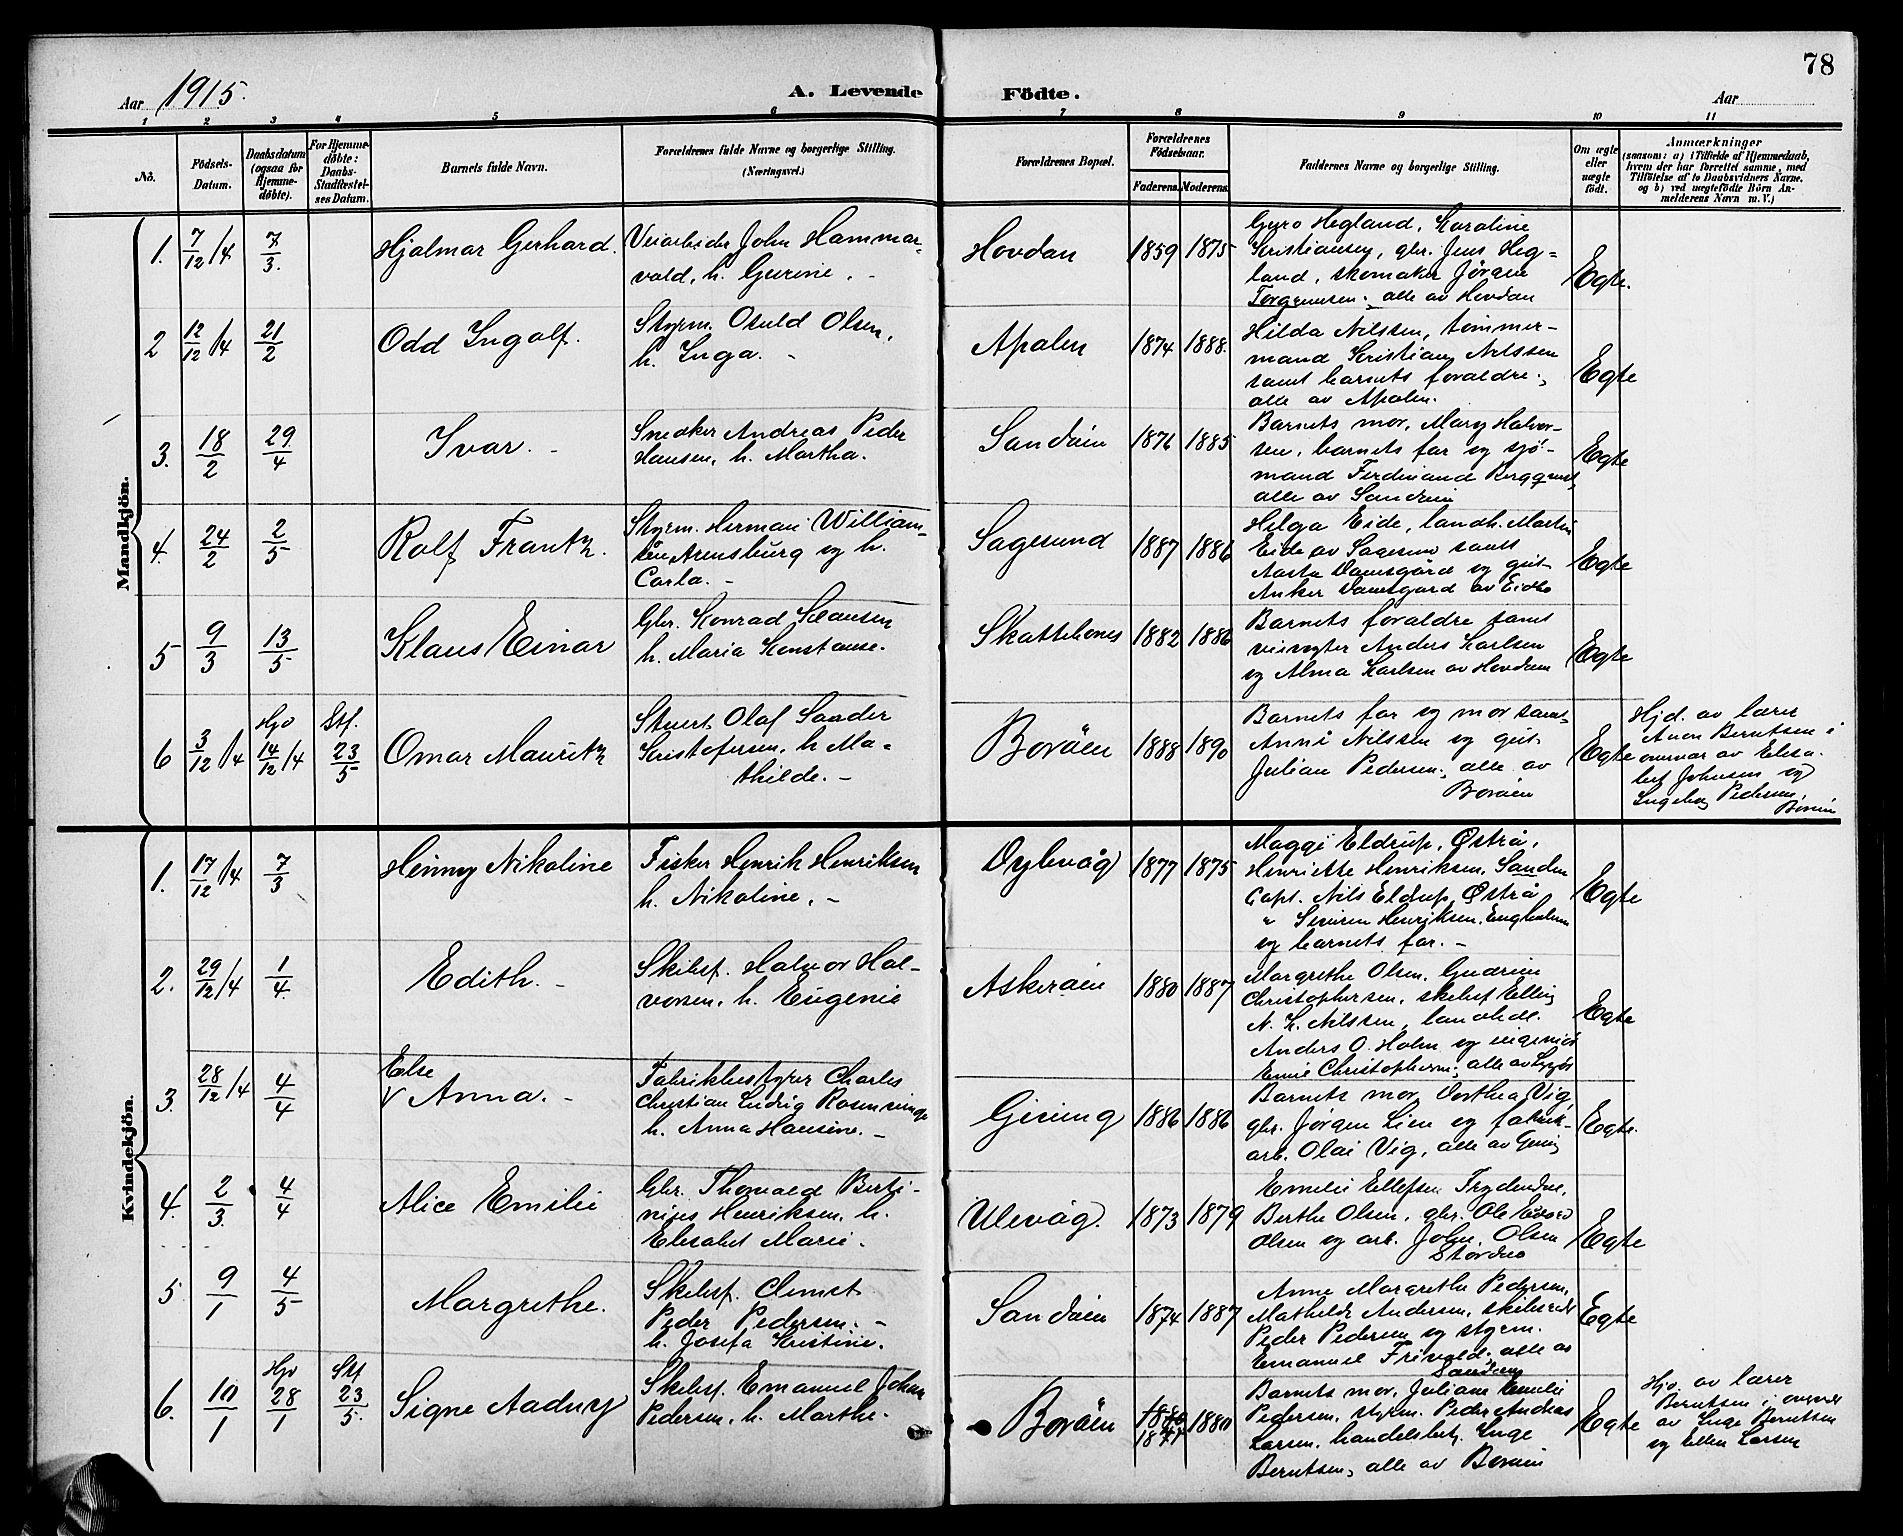 78
Aar 1915.
A. Levende Födte.
Aar
1 2 3 4 5 6 7 8 9 10 11
No.
Födsels-Datum.
Daabsdatum (ogsaa for Hjemmedøbte).
For Hjemmedøbte: Daabs-Stadfæstelses Datum.
Barnets fulde Navn.
Forældrenes fulde Navne og borgerlige Stilling. (Næringsvei.)
Forældrenes Bopæl.
Forældrenes Födselsaar.
Faderens. Moderens.
Faddernes Navne og borgerlige Stilling.
Om ægte eller uægte født.
Anmærkninger
(saasom: a) i Tilfælde af Hjemmedaab, hvem der har forrettet samme, med Tilföielse af to Daabsvidners Navne. og b) ved uægtefödte Börn Anmelderens Navn m. V.)
Mandkjön.
1. 7/12 14 7/3. Hjalmar Gerhard.
Veiarbeider John Hammar-
vald, h. Gurine. -
Hovdan 1859 1875
Guro Hegland, Karoline
Kristiansen, gbr. Jens Heg-
land, skomaker Jørgen
Torgrimsen, alle av Hovdan
Egte.
2 12/12 14 21/2 Odd Ingolf.
Styrm. Osuld Olsen,
h. Inga. -
Apalen 1874 1888.
Hilda Nilssen, tømmer-
mand Kristian Nilssen
samt barnets forældre,
alle av Apalen.
Egte
3. 18/2 29/4 Ivar. -
Snedker Andreas Peder
Hansen, h. Martha.
Sandøien 1876 1885
Barnets mor, Mary Halvor-
sen, barnets far og sjö-
mand Ferdinand Berggrent,
alle av Sandøien
Egte
4. 24/2 2/5 Rolf Frantz.
Styrm. Herman William-
Arensburg og h.
Carla. -
Sagesund 1887 1886
Helga Eide, landh. Martin
Eide av Sagesund samt
Aasta Damsgård og gut-
Anker Damsgard av Eidbo
Egte
5 9/3 13/5 Klaus Einar
Gbr. Konrad Klausen
h. Maria Konstanse.
Skattebones 1882 1886
Barnets forældre samt
veivogter Anders Karlsen
og Alma Karlsen av Hovdan
Egte
6 3/12 14 Hjd 14/12 14 Stf. 23/5 Omar Mauritz
Stuert Olaf Sander
Kristofersen, h. Ma-
thilde. -
Borøen 1888 1890
Barnets far og mor samt
Anna Nilssen og gut-
Julian Pedersen, alle av
Borøen
Egte
Hjd. av lærer
Aven Berntsen i
overvær av Elisa-
bet Johnsen og
Ingeborg Pedersen,
Borøen
Kvindekjön.
1. 17/12 14 7/3 Henny Nikoline
Fisker Henrik Henriksen
h. Nikoline. -
Dylevåg 1877 1875
Maggi Eldrup, Østrå,
Henriette Henriksen, Sanden
Capt. Nils Eldrup, Østrå
" Severin Henriksen, Engholmen
og barnets far. -
Egte
2. 29/12 14 1/4. Edith. -
Skibsf. Halvor Hal-
vorsen, h. Eugenie
Askerøien 1880 1887
Margrethe Olsen, Gudrun
Christophersen, skibsf. Elling
N. K. Nilssen, landhdl.
Anders O. Holm og ingeniør
Emil Christophersen, alle av Lyngør
Egte
3. 28/12 14 4/4 Else
V Anna. -
Fabrikbestyrer Charles
Christian Ludvig Rosenvinge
h. Anna Hansine. -
Gjeving 1886 1886
Barnets mor, Dorthea Vig,
gbr. Jørgen Lien og fabrik-
arb. Olai Vig, alle av Gjeving
Egte.
4. 2/3. 4/4 Alice Emilie
Gbr. Thorvald Berti-
nijes Henriksen, h.
Elisabet Marie.
Ulevåg. 1873 1879
Emilie Ellefsen Frydendal,
Berthe Olsen, gbr. Ole Edvard
Olsen og arb. John Olsen
Egte
5 9/1 4/5 Margrethe.
Skibsf. Clemet
Peder Pedersen. -
h. Josefa Kristine.
Sandøien 1874 1887
Anne Margrethe Pedersen,
Mathilde Andersen, skibsred.
Peder Pedersen og styrm.
Emanuel Frivold, alle av
Sandøen
Egte
6. 10/1 Hjd 28/1 Stf 23/5. Signe Aadny
Skibsf. Emanuel Johan
Pedersen, h. Marthe.
Borøen 1880 1877 1880
Barnets mor, Juliane Emelie
Pedersen, styrm. Peder Andreas
Larsen, handelsbetj. Inge
Berntsen, alle av Borøen
Egte
Hjd. av lærer
Berntsen i overvær
av Inge Berntsen
og Ellen Larsen